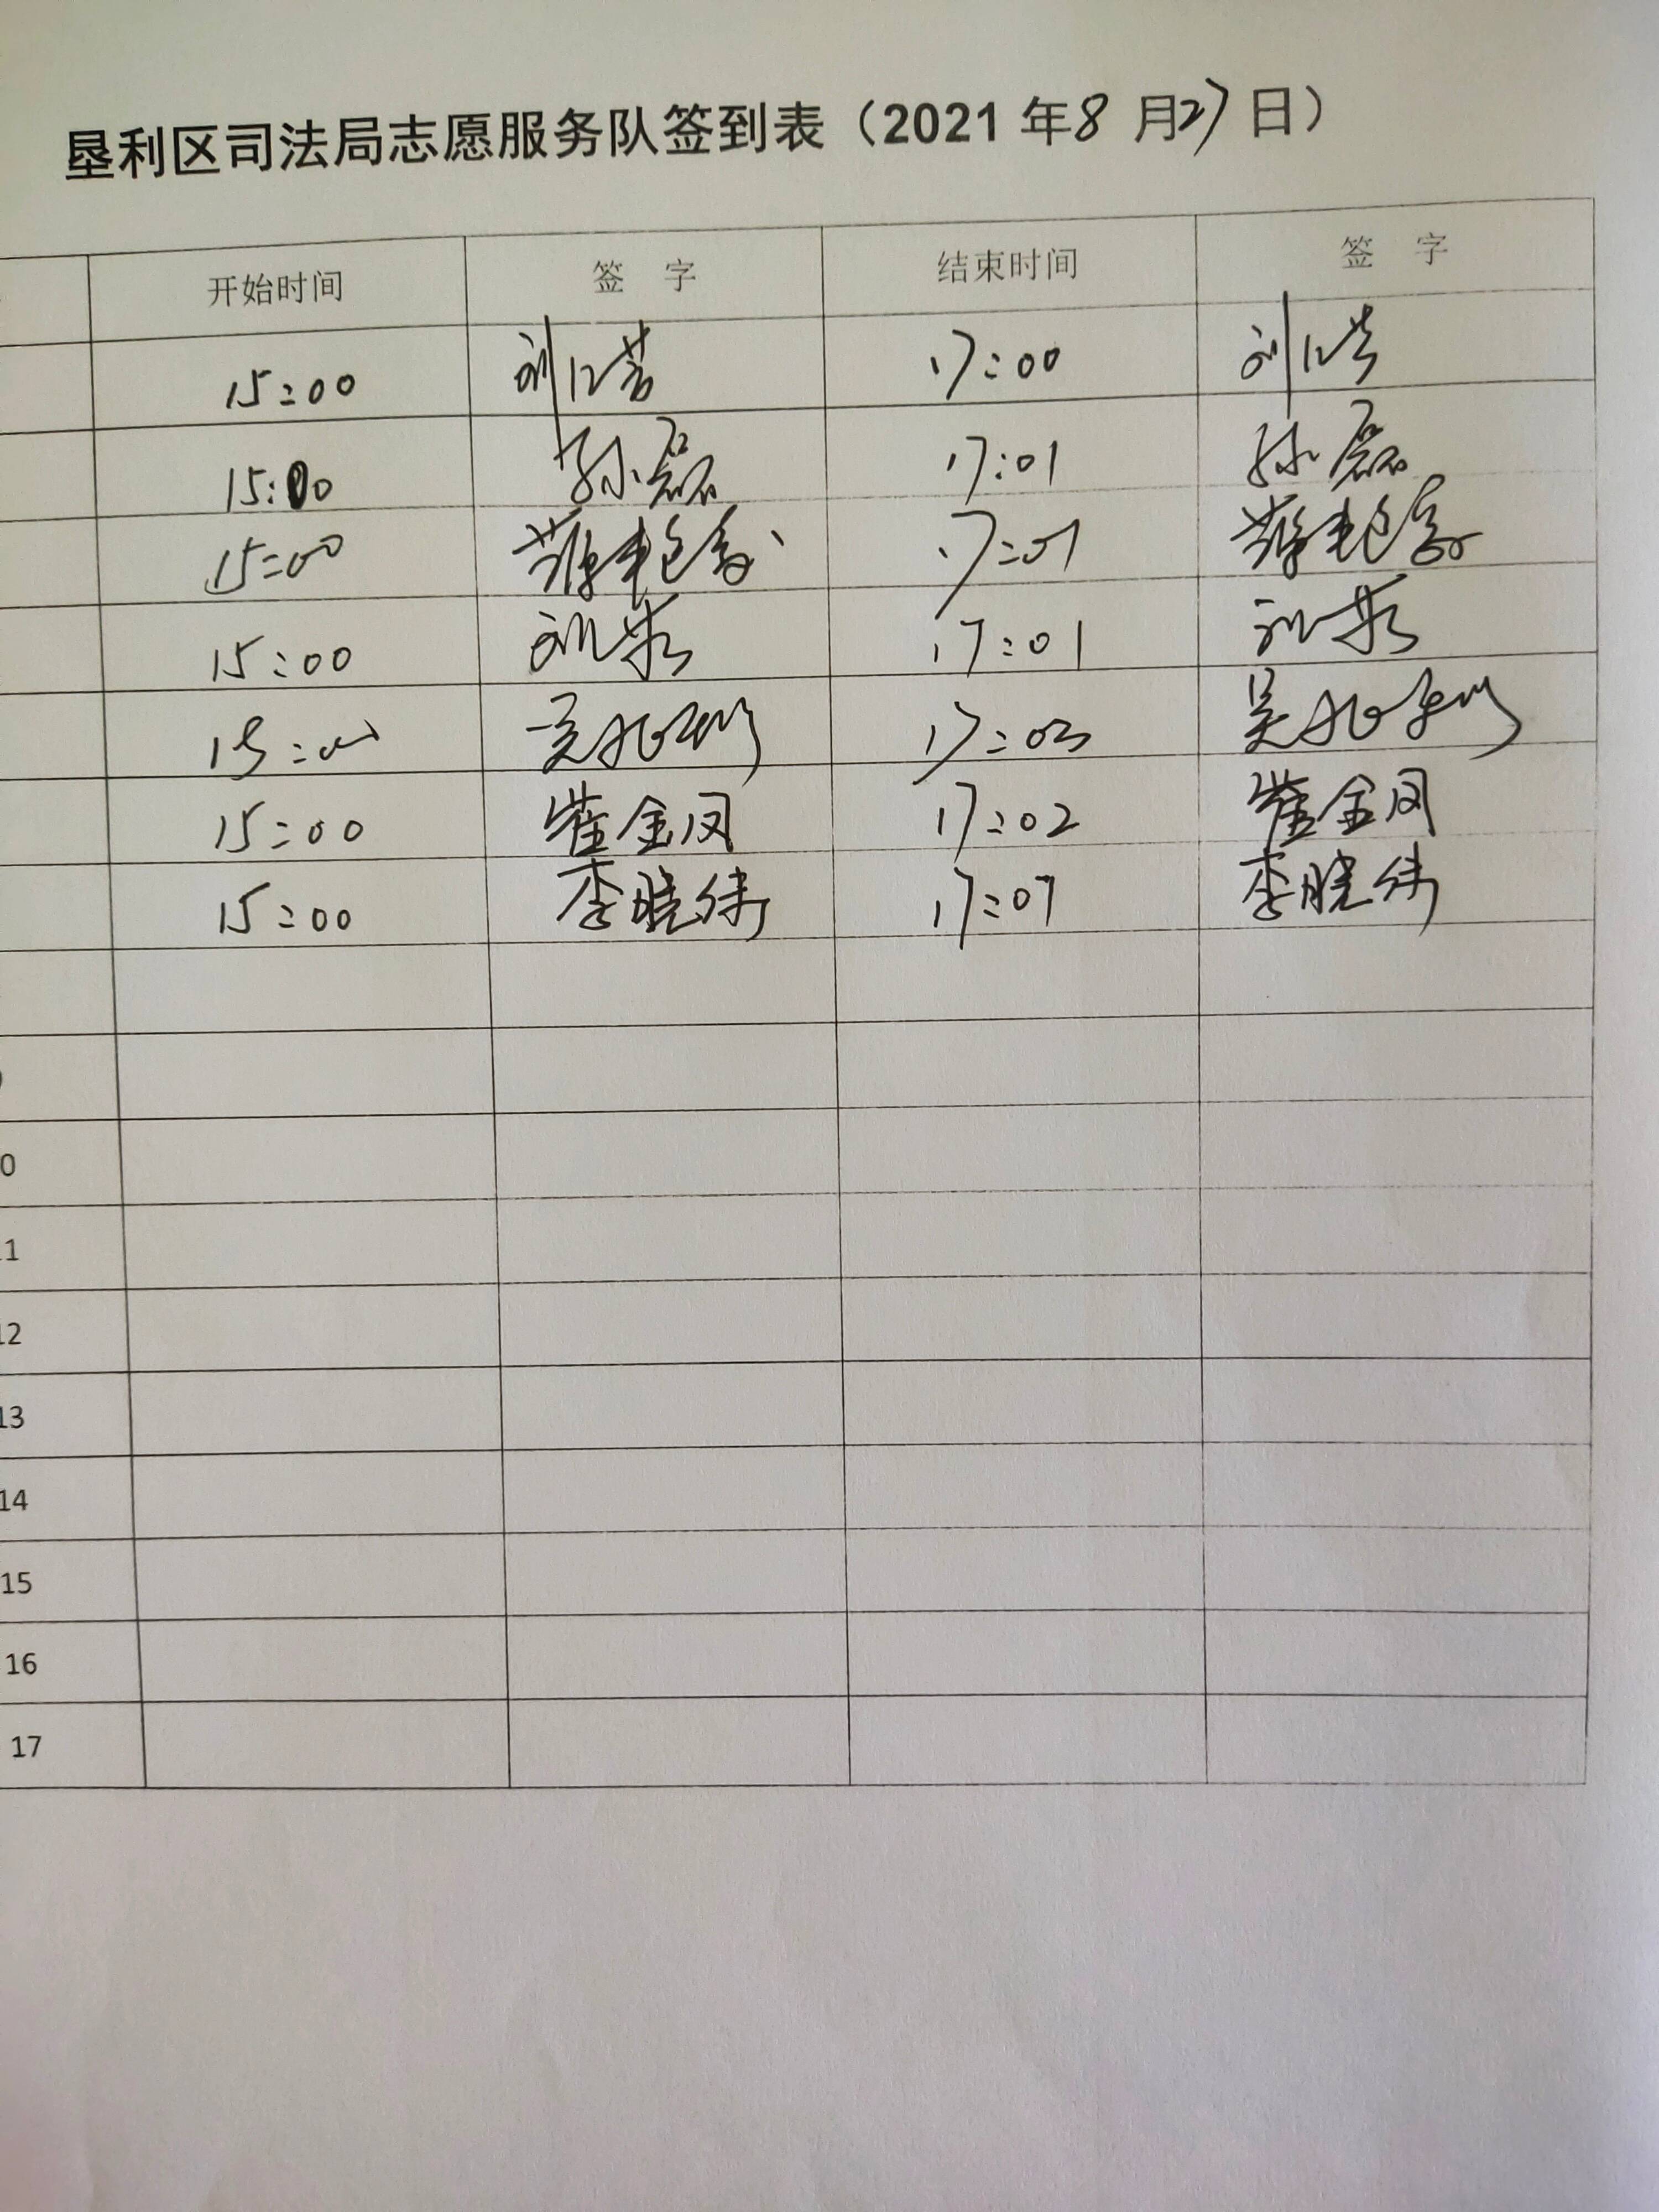 垦利区司法局志愿服务队签到表（2021 年8 月27日）
开始时间 签 字 结束时间 签 字
15:00 刘 17:00 刘
15:00 孙磊 17:01 孙磊
15:00 薛艳 17:01 薛艳
15:00 刘 17:01 刘
15:00 吴 17:03 吴
15:00 崔金凤 17:02 崔金凤
15:00 李晓伟 17:07 李晓伟
0
1
12
13
14
15
16
17